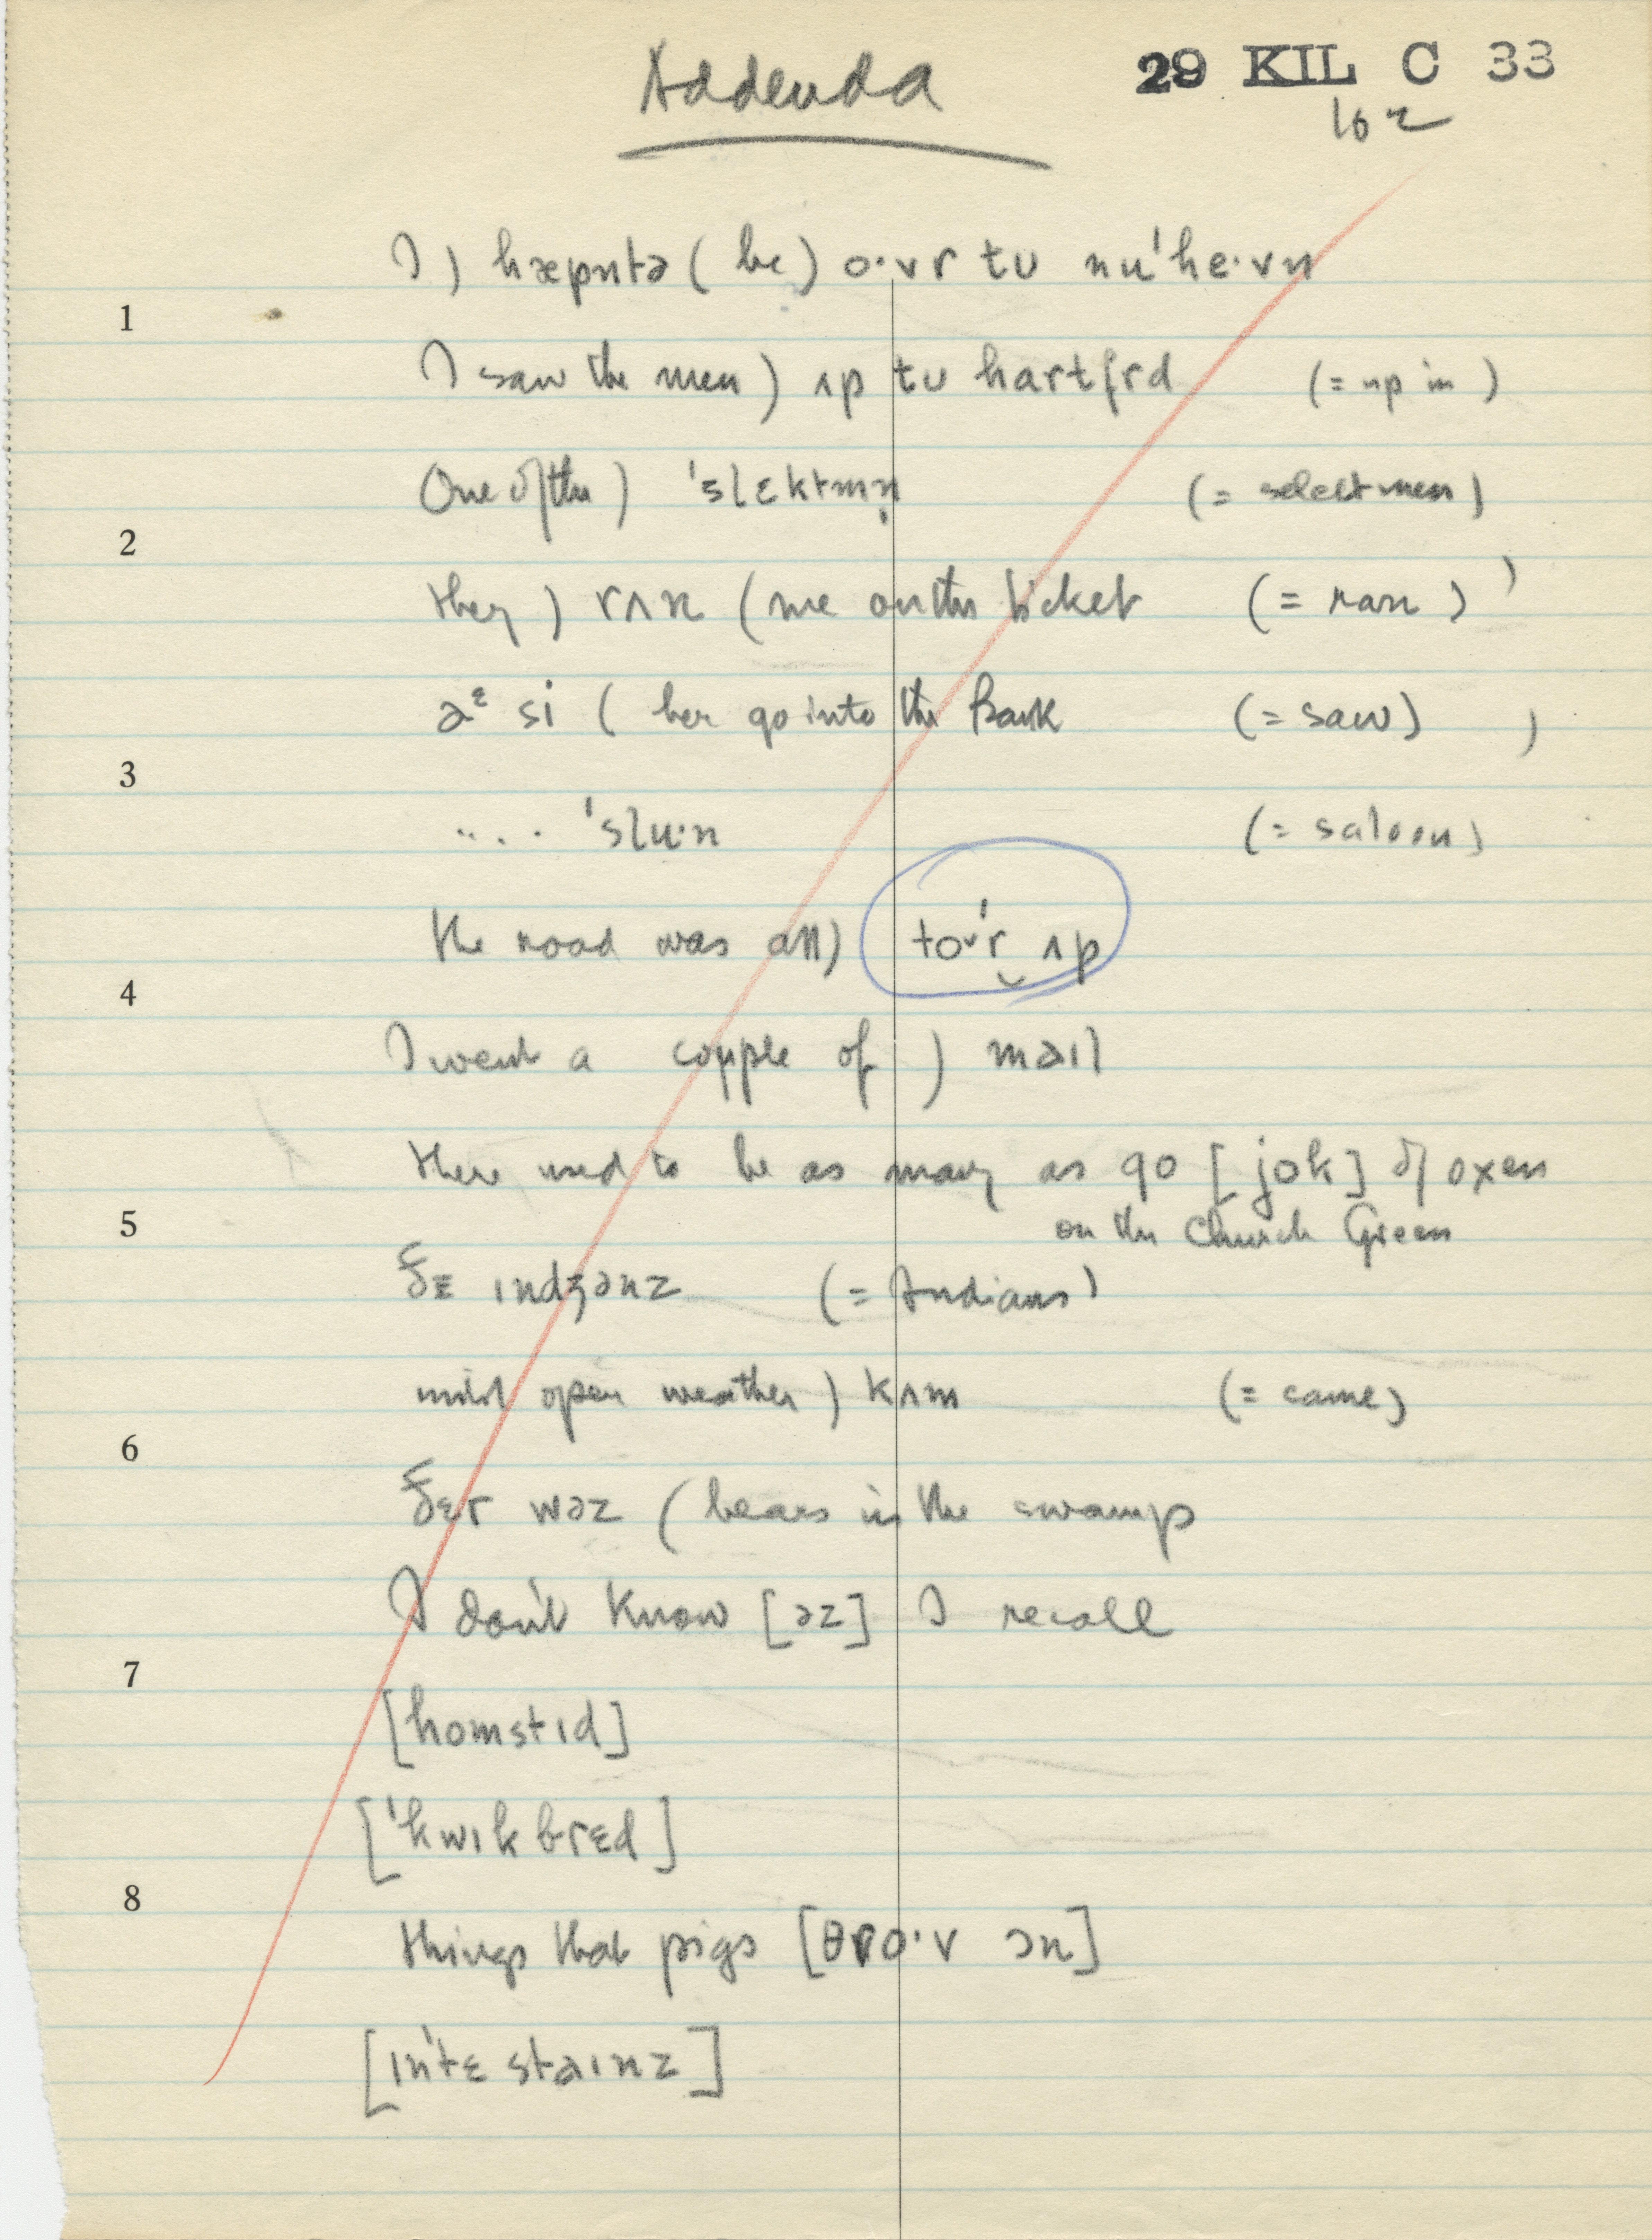 Addenda
29 KIL C 33
162
I) hæpntə (be) o·vr tʊ nu'he·vn
1
I saw the men) ʌp tʊ hartfrd (= up in)
One of the) 'slɛktmn̩ (= selectmen)
2
they) rʌn (me on the ticket (= ran)
aᵋ si (her go into the Bank (= saw)
3
.... 'slu·n (= saloon)
the road was all) to˅'r‿ʌp
4
I went a couple of) maɪl
there used to be as many as 90 [jok] of oxen
5
on the Church Green
ðɛ ɪndʒənz (= Indians)
mild open weather) kʌm (= came)
6
ðɛr wəz (bears in the swamp
I don't know [əz] I recall
7
[homstɪd]
['kwɪkbrɛd]
8
things that pigs [θro·v ɔn]
[ɪn'tɛstaɪnz]